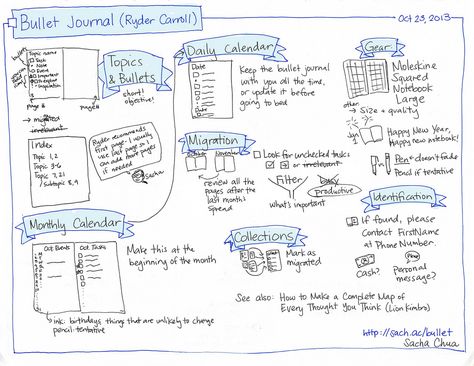 Bullet Journal (Ryder Carroll)
Oct 23, 2013
Topic name
Task
Note
Event
Important
Explore
Inspiration
page #
page #
→ migrated
irrelevant
Topics
& Bullets
short!
objective!
Index
Topic 1, 2
Topic 3-6
Topic 7, 21
Subtopic 8, 9
Ryder recommends
first page. I usually
use last page so I
can add more pages
if needed.
@sacha
Daily Calendar
Date
Date
Keep the bullet journal
with you all the time,
or update it before
going to bed
Migration
October
November
review all the
pages after the
last month's
spread
Look for unchecked tasks
→ or irrelevant
Filter
what's important
busy
productive
Gear
Moleskine
Squared
Notebook
Large
other
→ Size + quality
Jan
1
Happy New Year,
Happy new notebook!
Pen doesn't fade
Pencil if tentative
Identification
If found, please
Contact FirstName
at Phone Number.
Cash?
Personal
message?
Monthly Calendar
Oct Events
Oct Tasks
Make this at the
beginning of the month
ink: birthdays, things that are unlikely to change
pencil: tentative
Collections
Mark as
migrated
See also: How to Make a Complete Map of
Every Thought You Think (Lion Kimbro)
http://sach.ac/bullet
Sacha Chua